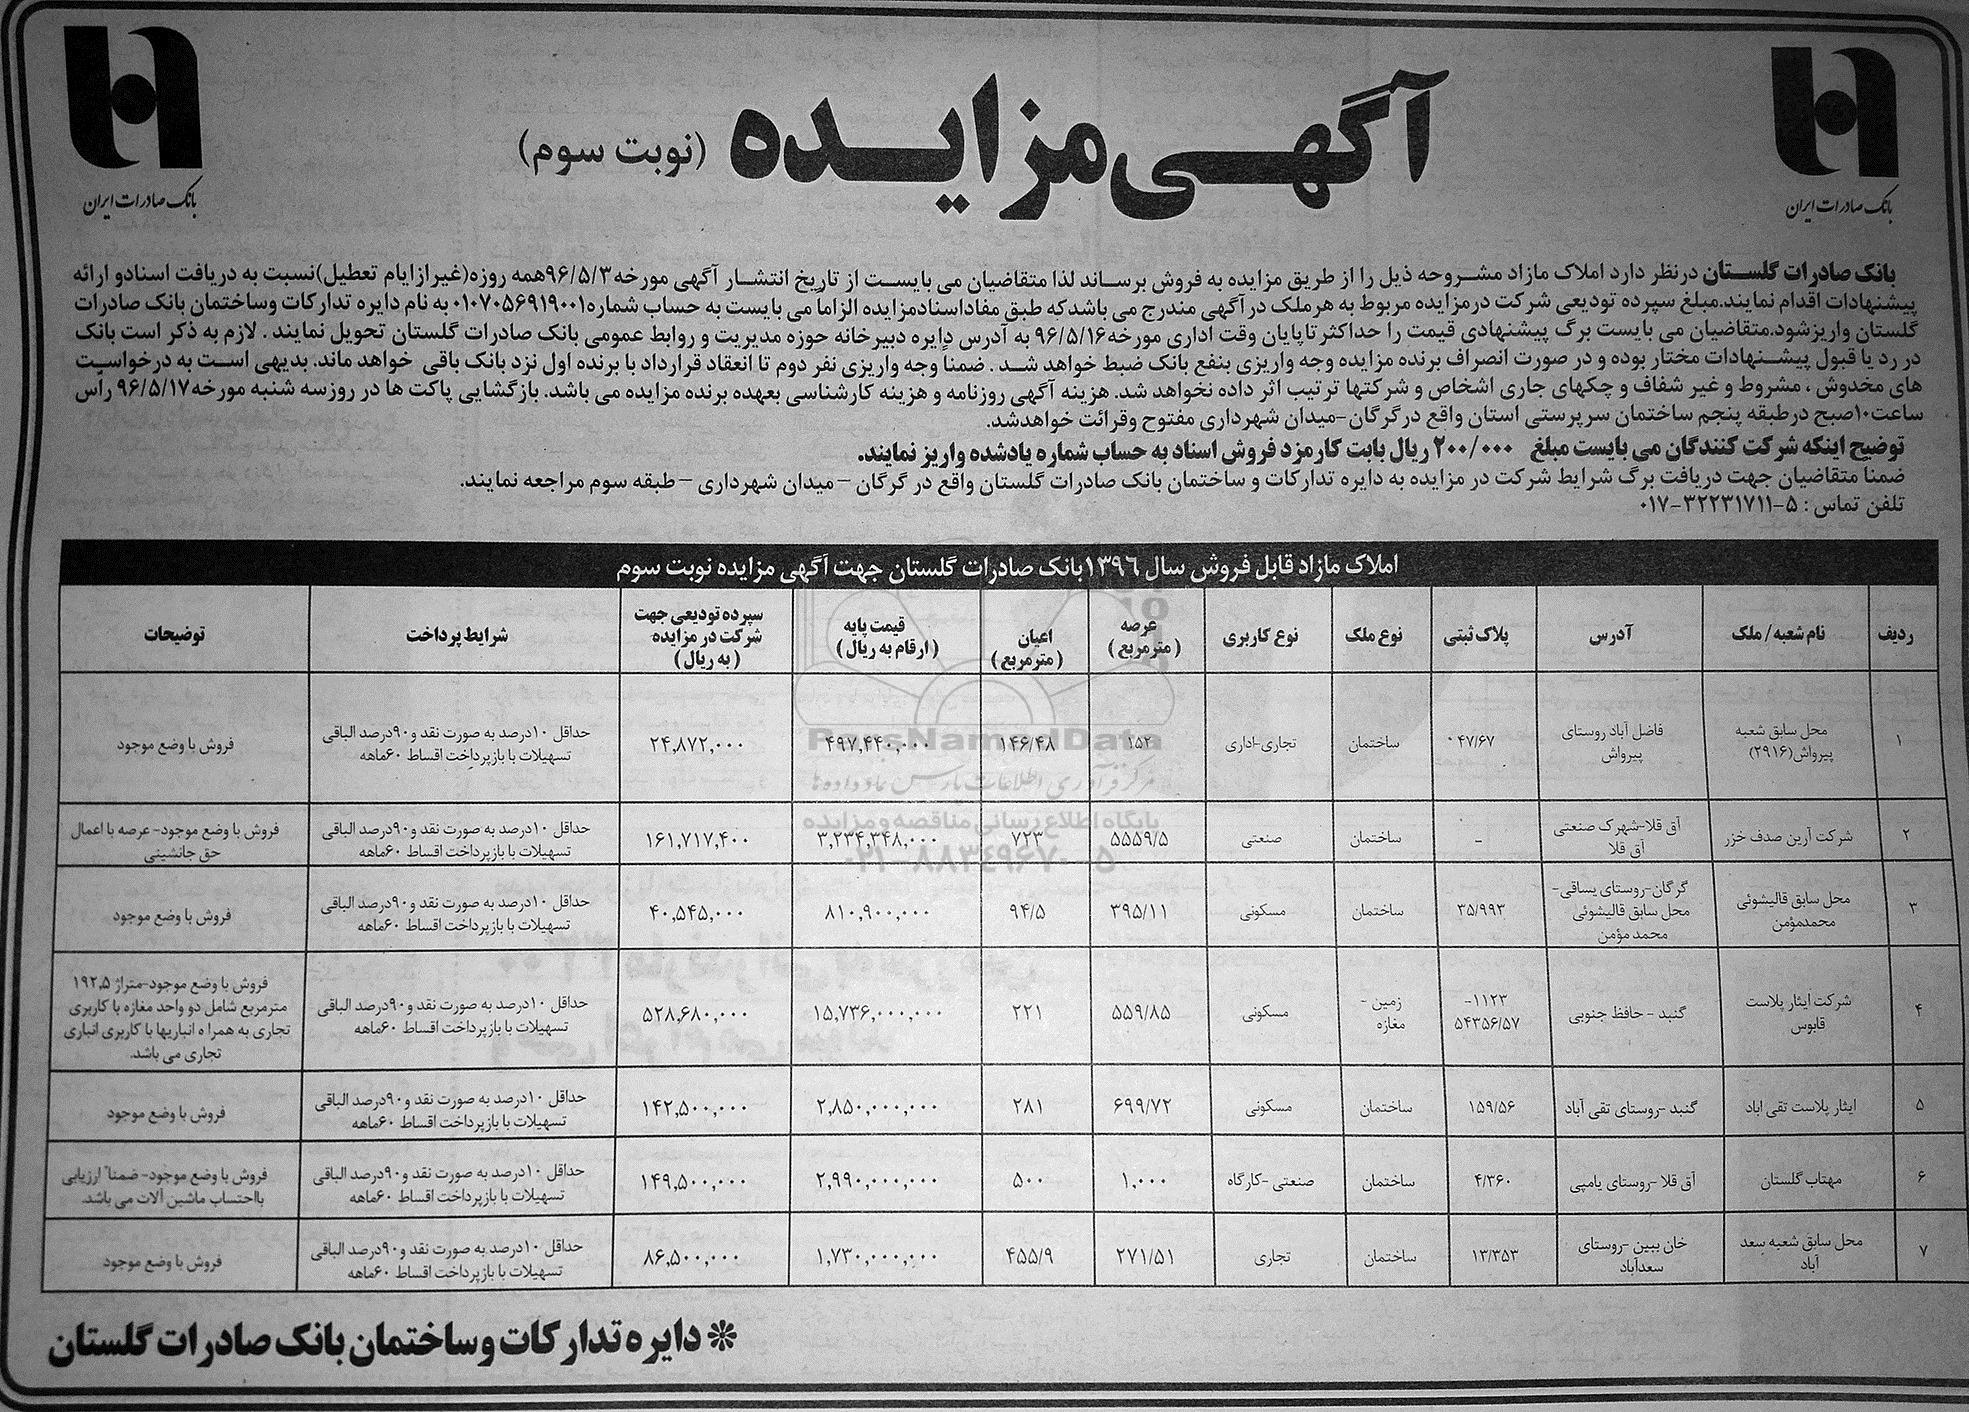 آگهی مزایده (نوبت سوم)
بانک صادرات ایران
بانک صادرات ایران
بانک صادرات گلستان درنظر دارد املاک مازاد مشروحه ذیل را از طریق مزایده به فروش برساند لذا متقاضیان می بایست از تاریخ انتشار آگهی مورخه ۹۶/۵/۳همه روزه(غیرازایام تعطیل)نسبت به دریافت اسنادو ارائه
پیشنهادات اقدام نمایند.مبلغ سپرده تودیعی شرکت درمزایده مربوط به هرملک درآگهی مندرج می باشدکه طبق مفاداسنادمزایده الزاما می بایست به حساب شماره۰۱۰۷۰۵۶۹۱۹۰۰۱ به نام دایره تدارکات وساختمان بانک صادرات
گلستان واریزشود.متقاضیان می بایست برگ پیشنهادی قیمت را حداکثرتاپایان وقت اداری مورخه ۹۶/۵/۱۶ به آدرس دایره دبیرخانه حوزه مدیریت و روابط عمومی بانک صادرات گلستان تحویل نمایند . لازم به ذکر است بانک
در رد یا قبول پیشنهادات مختار بوده و در صورت انصراف برنده مزایده وجه واریزی بنفع بانک ضبط خواهد شد . ضمناً وجه واریزی نفر دوم تا انعقاد قرارداد با برنده اول نزد بانک باقی خواهد ماند. بدیهی است به درخواست
های مخدوش ، مشروط و غیر شفاف و چکهای جاری اشخاص و شرکتها ترتیب اثر داده نخواهد شد. هزینه آگهی روزنامه و هزینه کارشناسی بعهده برنده مزایده می باشد. بازگشایی پاکت ها در روزسه شنبه مورخه۹۶/۵/۱۷ راس
ساعت۱۰صبح درطبقه پنجم ساختمان سرپرستی استان واقع درگرگان-میدان شهرداری مفتوح وقرائت خواهدشد.
توضیح اینکه شرکت کنندگان می بایست مبلغ ۲۰۰/۰۰۰ ریال بابت کارمزد فروش اسناد به حساب شماره یادشده واریز نمایند.
ضمناً متقاضیان جهت دریافت برگ شرایط شرکت در مزایده به دایره تدارکات و ساختمان بانک صادرات گلستان واقع در گرگان – میدان شهرداری – طبقه سوم مراجعه نمایند.
تلفن تماس : ۵-۳۲۲۳۱۷۱۱-۰۱۷
املاک مازاد قابل فروش سال ۱۳۹۶بانک صادرات گلستان جهت آگهی مزایده نوبت سوم
ردیف نام شعبه / ملک آدرس پلاک ثبتی نوع ملک نوع کاربری عرصه (مترمربع) اعیان (مترمربع) قیمت پایه (ارقام به ریال) سپرده تودیعی جهت شرکت در مزایده (به ریال) شرایط پرداخت توضیحات
۱ محل سابق شعبه پیرواش(۲۹۱۶) فاضل آباد روستای پیرواش ۰۴۷/۶۷ ساختمان تجاری-اداری ۱۵۲ ۱۴۶/۴۸ ۴۹۷,۴۴۰,۰۰۰ ۲۴,۸۷۲,۰۰۰ حداقل ۱۰درصد به صورت نقد و۹۰درصد الباقی تسهیلات با بازپرداخت اقساط ۶۰ماهه فروش با وضع موجود
۲ شرکت آرین صدف خزر آق قلا-شهرک صنعتی آق قلا - ساختمان صنعتی ۵۵۵۹/۵ ۷۲۳ ۳,۲۳۴,۳۴۸,۰۰۰ ۱۶۱,۷۱۷,۴۰۰ حداقل ۱۰درصد به صورت نقد و۹۰درصد الباقی تسهیلات با بازپرداخت اقساط ۶۰ماهه فروش با وضع موجود- عرصه با اعمال حق جانشینی
۳ محل سابق قالیشوئی محمدمؤمن گرگان-روستای یساقی- محل سابق قالیشوئی محمد مؤمن ۳۵/۹۹۳ ساختمان مسکونی ۳۹۵/۱۱ ۹۴/۵ ۸۱۰,۹۰۰,۰۰۰ ۴۰,۵۴۵,۰۰۰ حداقل ۱۰درصد به صورت نقد و۹۰درصد الباقی تسهیلات با بازپرداخت اقساط ۶۰ماهه فروش با وضع موجود
۴ شرکت ایثار پلاست قابوس گنبد - حافظ جنوبی ۱۱۲۳- ۵۴۳۵۶/۵۷ زمین - مغازه مسکونی ۵۵۹/۸۵ ۲۲۱ ۱۵,۷۳۶,۰۰۰,۰۰۰ ۵۲۸,۶۸۰,۰۰۰ حداقل ۱۰درصد به صورت نقد و۹۰درصد الباقی تسهیلات با بازپرداخت اقساط ۶۰ماهه فروش با وضع موجود-متراژ ۱۹۲,۵ مترمربع شامل دو واحد مغازه با کاربری تجاری به همرا ه انباریها با کاربری انباری تجاری می باشد.
۵ ایثار پلاست تقی اباد گنبد -روستای تقی آباد ۱۵۹/۵۶ ساختمان مسکونی ۶۹۹/۷۲ ۲۸۱ ۲,۸۵۰,۰۰۰,۰۰۰ ۱۴۲,۵۰۰,۰۰۰ حداقل ۱۰درصد به صورت نقد و۹۰درصد الباقی تسهیلات با بازپرداخت اقساط ۶۰ماهه فروش با وضع موجود
۶ مهتاب گلستان آق قلا -روستای یامپی ۴/۳۶۰ ساختمان صنعتی -کارگاه ۱,۰۰۰ ۵۰۰ ۲,۹۹۰,۰۰۰,۰۰۰ ۱۴۹,۵۰۰,۰۰۰ حداقل ۱۰درصد به صورت نقد و۹۰درصد الباقی تسهیلات با بازپرداخت اقساط ۶۰ماهه فروش با وضع موجود- ضمنا" ارزیابی بااحتساب ماشین آلات می باشد.
۷ محل سابق شعبه سعد آباد خان ببین -روستای سعدآباد ۱۳/۳۵۳ ساختمان تجاری ۲۷۱/۵۱ ۴۵۵/۹ ۱,۷۳۰,۰۰۰,۰۰۰ ۸۶,۵۰۰,۰۰۰ حداقل ۱۰درصد به صورت نقد و۹۰درصد الباقی تسهیلات با بازپرداخت اقساط ۶۰ماهه فروش با وضع موجود
ParsNamadData
مرکز فرآوری اطلاعات پارس نماد داده ها
پایگاه اطلاع رسانی مناقصه و مزایده
۰۲۱-۸۸۳۴۹۶۷۰-۵
❊ دایره تدارکات وساختمان بانک صادرات گلستان